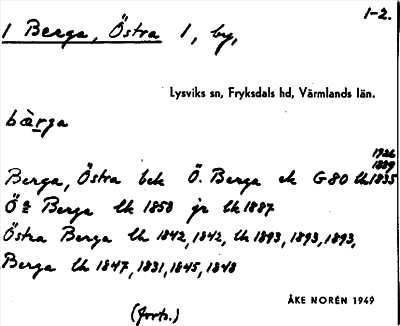 1-2.
1 Berga, Östra 1, by,
Lysviks sn, Fryksdals hd, Värmlands län.
bàrga
1926
1889
Berga, Östra bek Ö. Berga ek G80 lk 1835
Öª Berga lk 1858 jr lk 1887
Östra Berga lk 1842, 1842, lk 1893, 1893, 1893,
Berga lk 1847, 1831, 1845, 1848
ÅKE NORÉN 1949
(forts.)